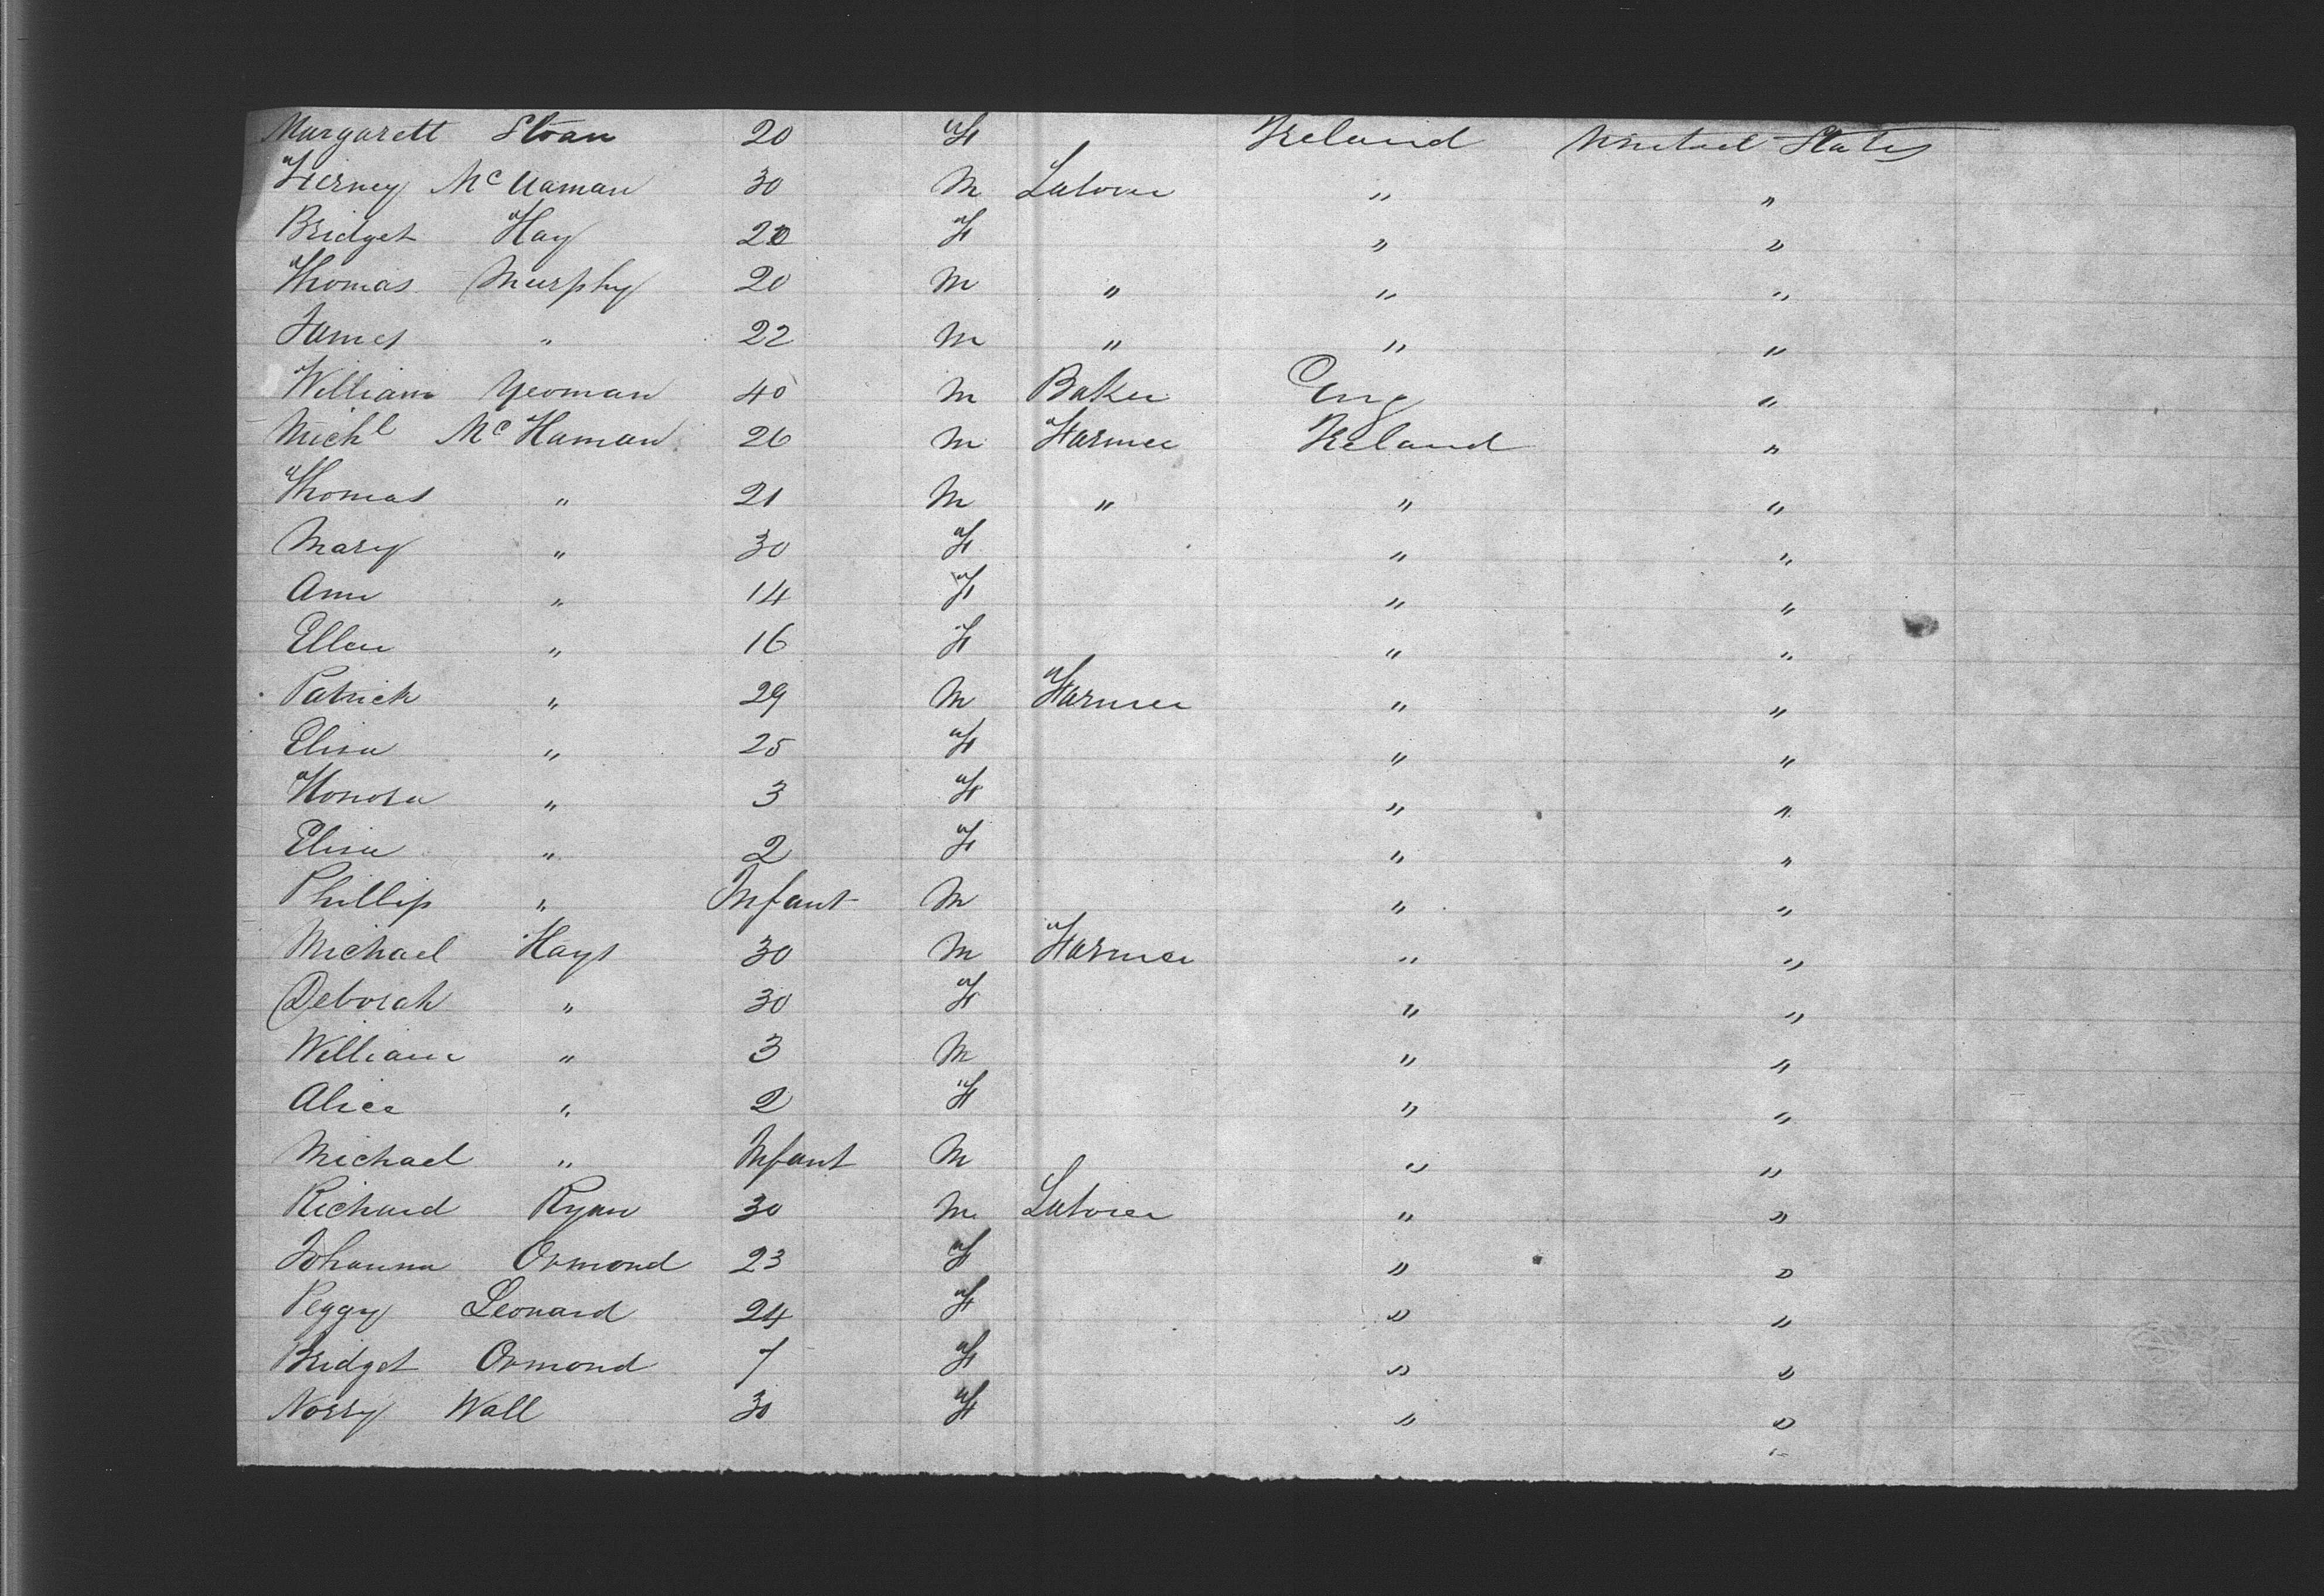 Margarett Sloan 20 F Ireland United States
Tierney McNaman 30 M Laborer " "
Bridget Hay 20 F " "
Thomas Murphy 20 M " " "
James " 22 M " " "
William Yeoman 40 M Baker Eng "
Michl McHaman 26 M Farmer Ireland "
Thomas " 21 M " " "
Mary " 30 F " "
Ann " 14 F " "
Ellen " 16 F " "
Patrick " 29 M Farmer " "
Elisa " 25 F " "
Honora " 3 F " "
Elisa " 2 F " "
Phillip " Infant M " "
Michael Hays 30 M Farmer " "
Deborah " 30 F " "
William " 3 M " "
Alice " 2 F " "
Michael " Infant M " "
Richard Ryan 30 M Laborer " "
Johanna Ormond 23 F " "
Peggy Leonard 24 F " "
Bridget Ormond 7 F " "
Norry Wall 30 F " "
"